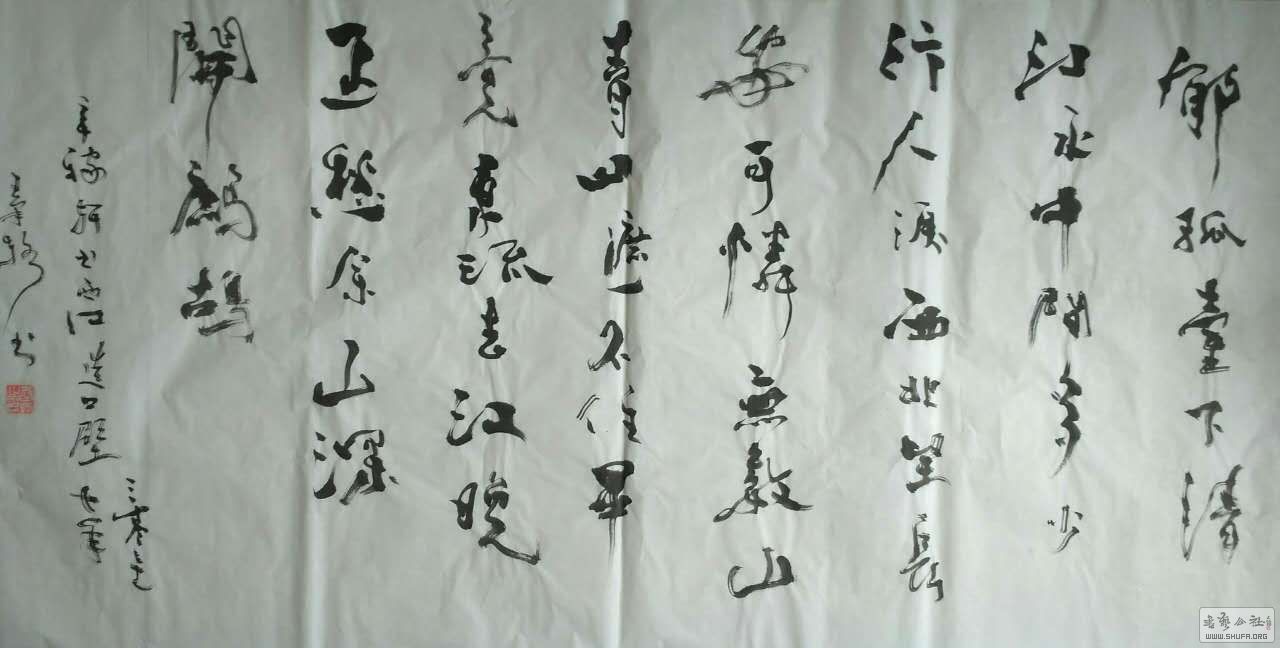 郁孤臺下清
江水中間多少
行人淚西北望長
安可憐無數山
青山遮不住畢
竟東流去江晚
正愁余山深
聞鷓鴣
辛稼軒書江造口壁
書
书艺公社
WWW.SHUFA.ORG